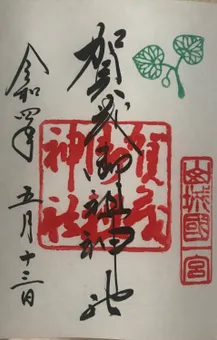 山城國一宮
賀茂御祖神社
賀茂御祖神社
令和四年
五月十三日